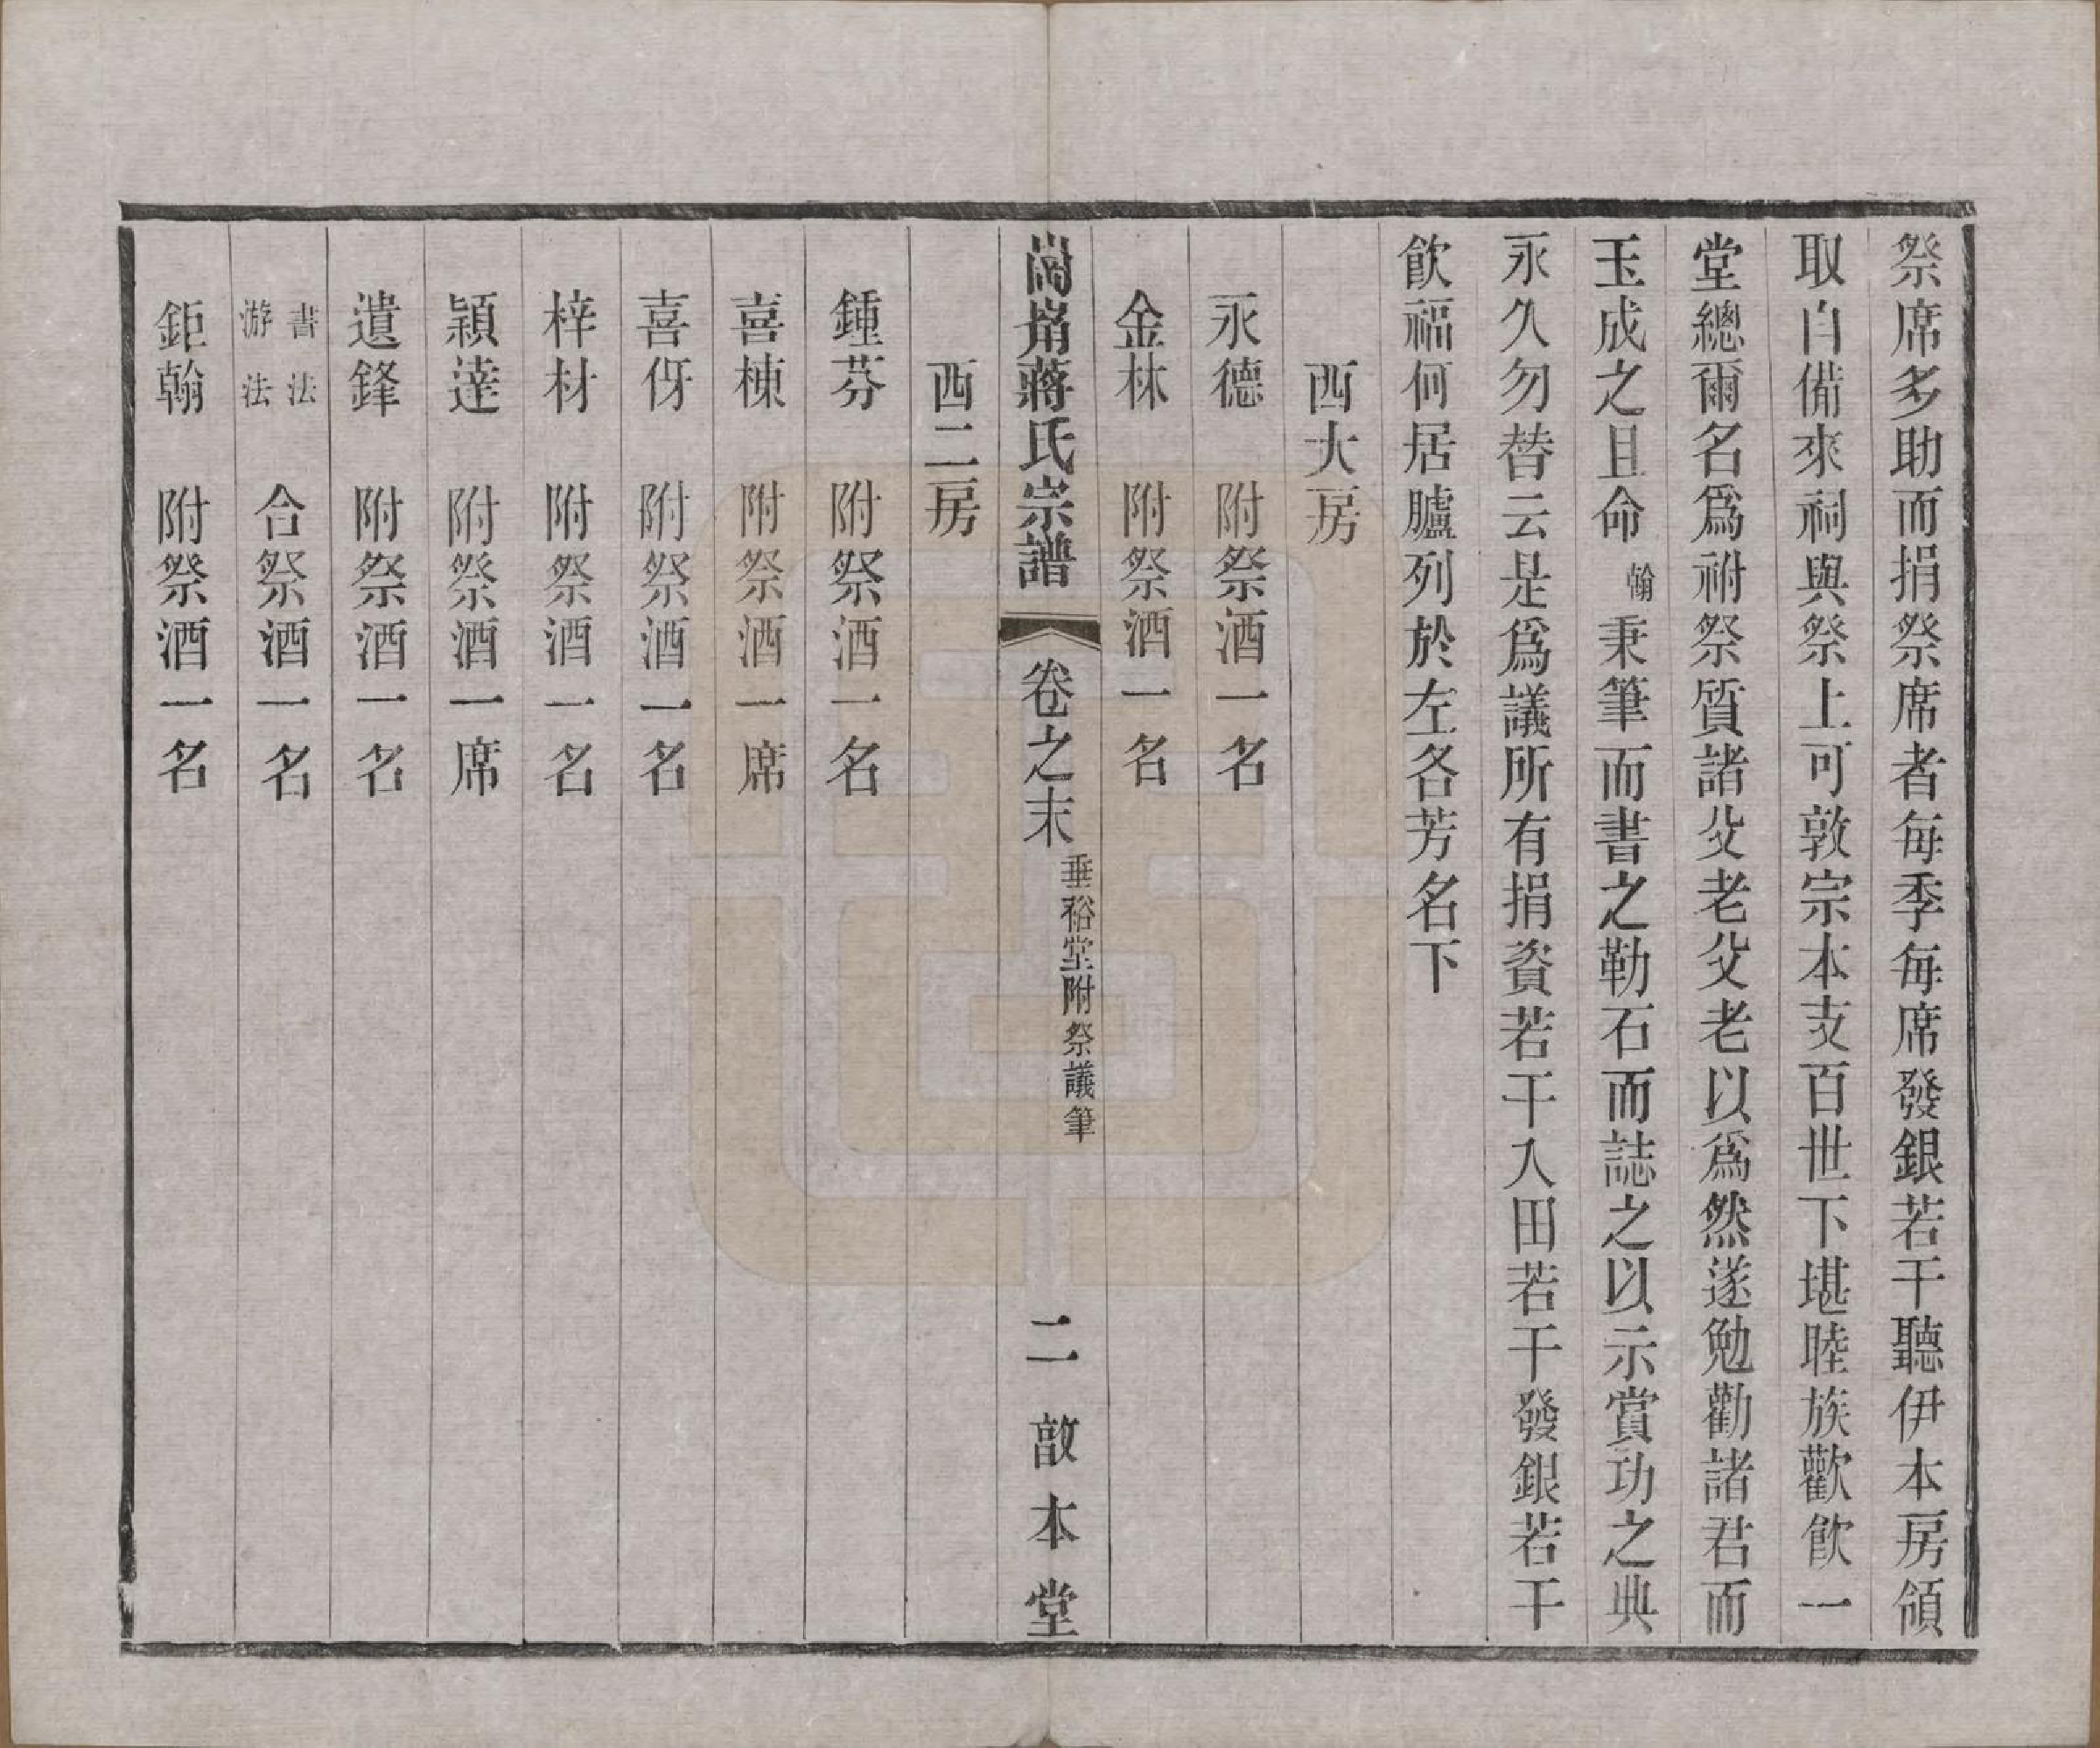 祭席多助而捐祭席者每季每席發銀若干聽伊本房領
取自備來祠與祭上可敦宗本支百世下堪睦族歡飮一
堂總爾名爲祔祭質諸父老父老以爲然遂勉勸諸君而
玉成之且命翰秉筆而書之勒石而誌之以示賞功之典
永久勿替云是爲議所有捐資若干入田若干發銀若干
飮福何居臚列於左各芳名下
西大房
永德 附祭酒一名
金林 附祭酒一名
蔣氏宗譜 卷之末 垂裕堂附祭議筆 二 敔本堂
西二房
鍾芬 附祭酒一名
喜棟 附祭酒一席
喜伢 附祭酒一名
梓材 附祭酒一名
穎達 附祭酒一席
遺鋒 附祭酒一名
書法
游法 合祭酒一名
鉅翰 附祭酒一名